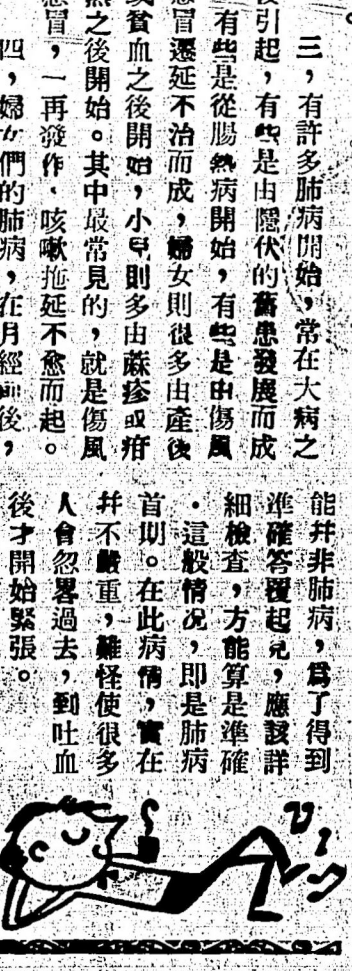 三，有許多肺病開始，常在大病之
後引起，有些是由隱伏的舊患發展而成
有些是從腸熱病開始，有些是由傷風
感冒遷延不治而成，婦女則很多由產後
或貧血之後開始，小兒則多由蔴疹或疳
熱之後開始。其中最常見的，就是傷風
感冒，一再發作，咳嗽拖延不愈而起。
四，婦女們的肺病，在月經前後，
能并非肺病，爲了得到
準確答覆起見，應該詳
細檢查，方能算是準確
．這般情况，即是肺病
首期。在此病情，實在
并不嚴重，難怪使很多
人會忽畧過去，到吐血
後才開始緊張。